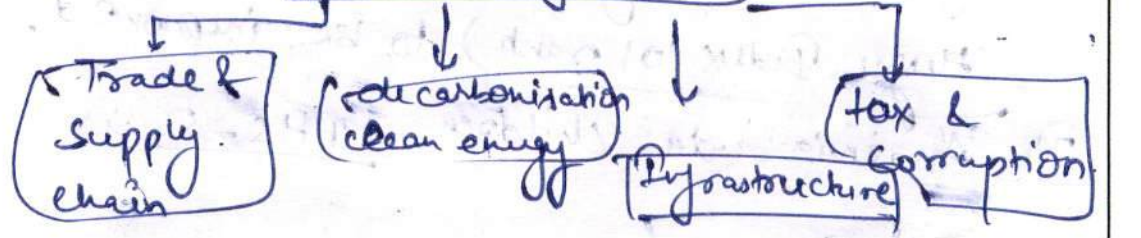 Trade &
Supply
chain
decarbonisation
clean energy
Infrastructure
tax &
Corruption